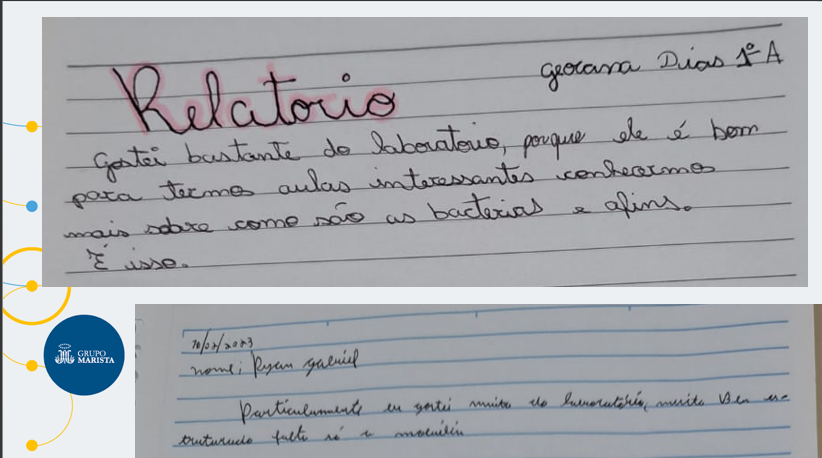 Relatorio
geovana Dias 1º A
Gostei bastante do laboratorio, porque ele é bom
para termos aulas interessantes conhecermos
mais sobre como são as bactérias e afins.
É isso.
GRUPO
MARISTA
nome: Ryan gabriel
Particularmente eu gostei muito do laboratório, muito Bem es-
truturado falta só a